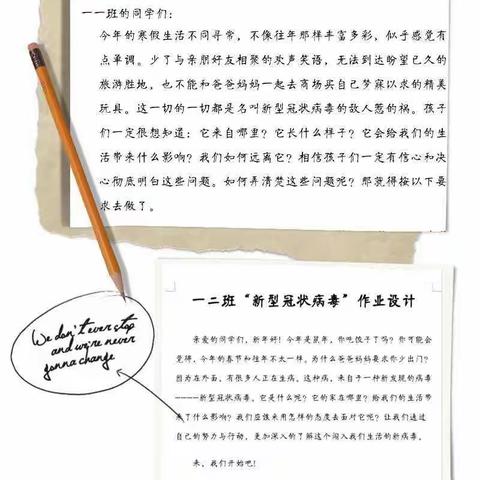 一一班的同学们：
今年的寒假生活不同寻常，不像往年那样丰富多彩，似乎感觉有
点单调。少了与亲朋好友相聚的欢声笑语，无法到达盼望已久的
旅游胜地，也不能和爸爸妈妈一起去商场买自己梦寐以求的精美
玩具。这一切的一切都是名叫新型冠状病毒的敌人惹的祸。孩子
们一定很想知道：它来自哪里？它长什么样子？它会给我们的生
活带来什么影响？我们如何远离它？相信孩子们一定有信心和决
心彻底明白这些问题。如何弄清楚这些问题呢？那就得按以下要
求去做了。
一二班“新型冠状病毒”作业设计
亲爱的同学们，新年好！今年是鼠年，你吃饺子了吗？你可能会
觉得，今年的春节和往年不太一样。为什么爸爸妈妈要求你少出门？
因为在外面，有很多人正在生病。这种病，来自于一种新发现的病毒
----新型冠状病毒。它是什么呢？它的家在哪里？给我们的生活带
来了什么影响？我们应该采用怎样的态度去面对它呢？让我们通过
自己的努力与行动，更加深入的了解这个闯入我们生活的新病毒。
来，我们开始吧！
We don't ever stop
and we're never
gonna change